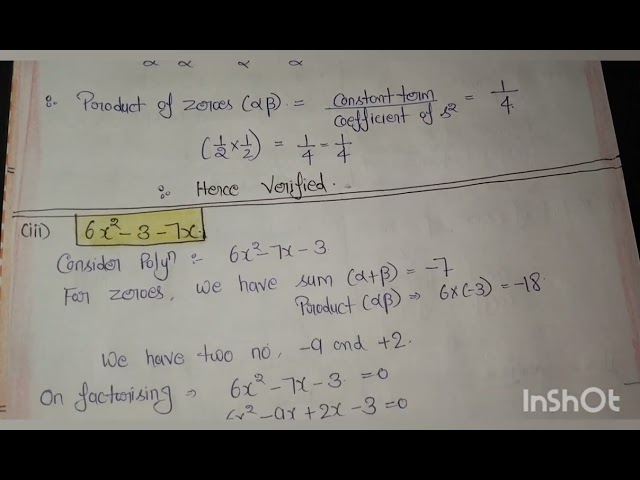 α α α α
∴ Product of zeroes (αβ) = Constant term / Coefficient of s² = 1/4
(1/2 × 1/2) = 1/4 = 1/4
∴ Hence Verified.
(iii) 6x² - 3 - 7x.
Consider Polyⁿ :- 6x² - 7x - 3
For zeroes, we have sum (α+β) = -7
Product (αβ) ⇒ 6×(-3) = -18.
We have two no. -9 and +2.
On factorising ⇒ 6x² - 7x - 3 = 0
6x² - 9x + 2x - 3 = 0
InShOt